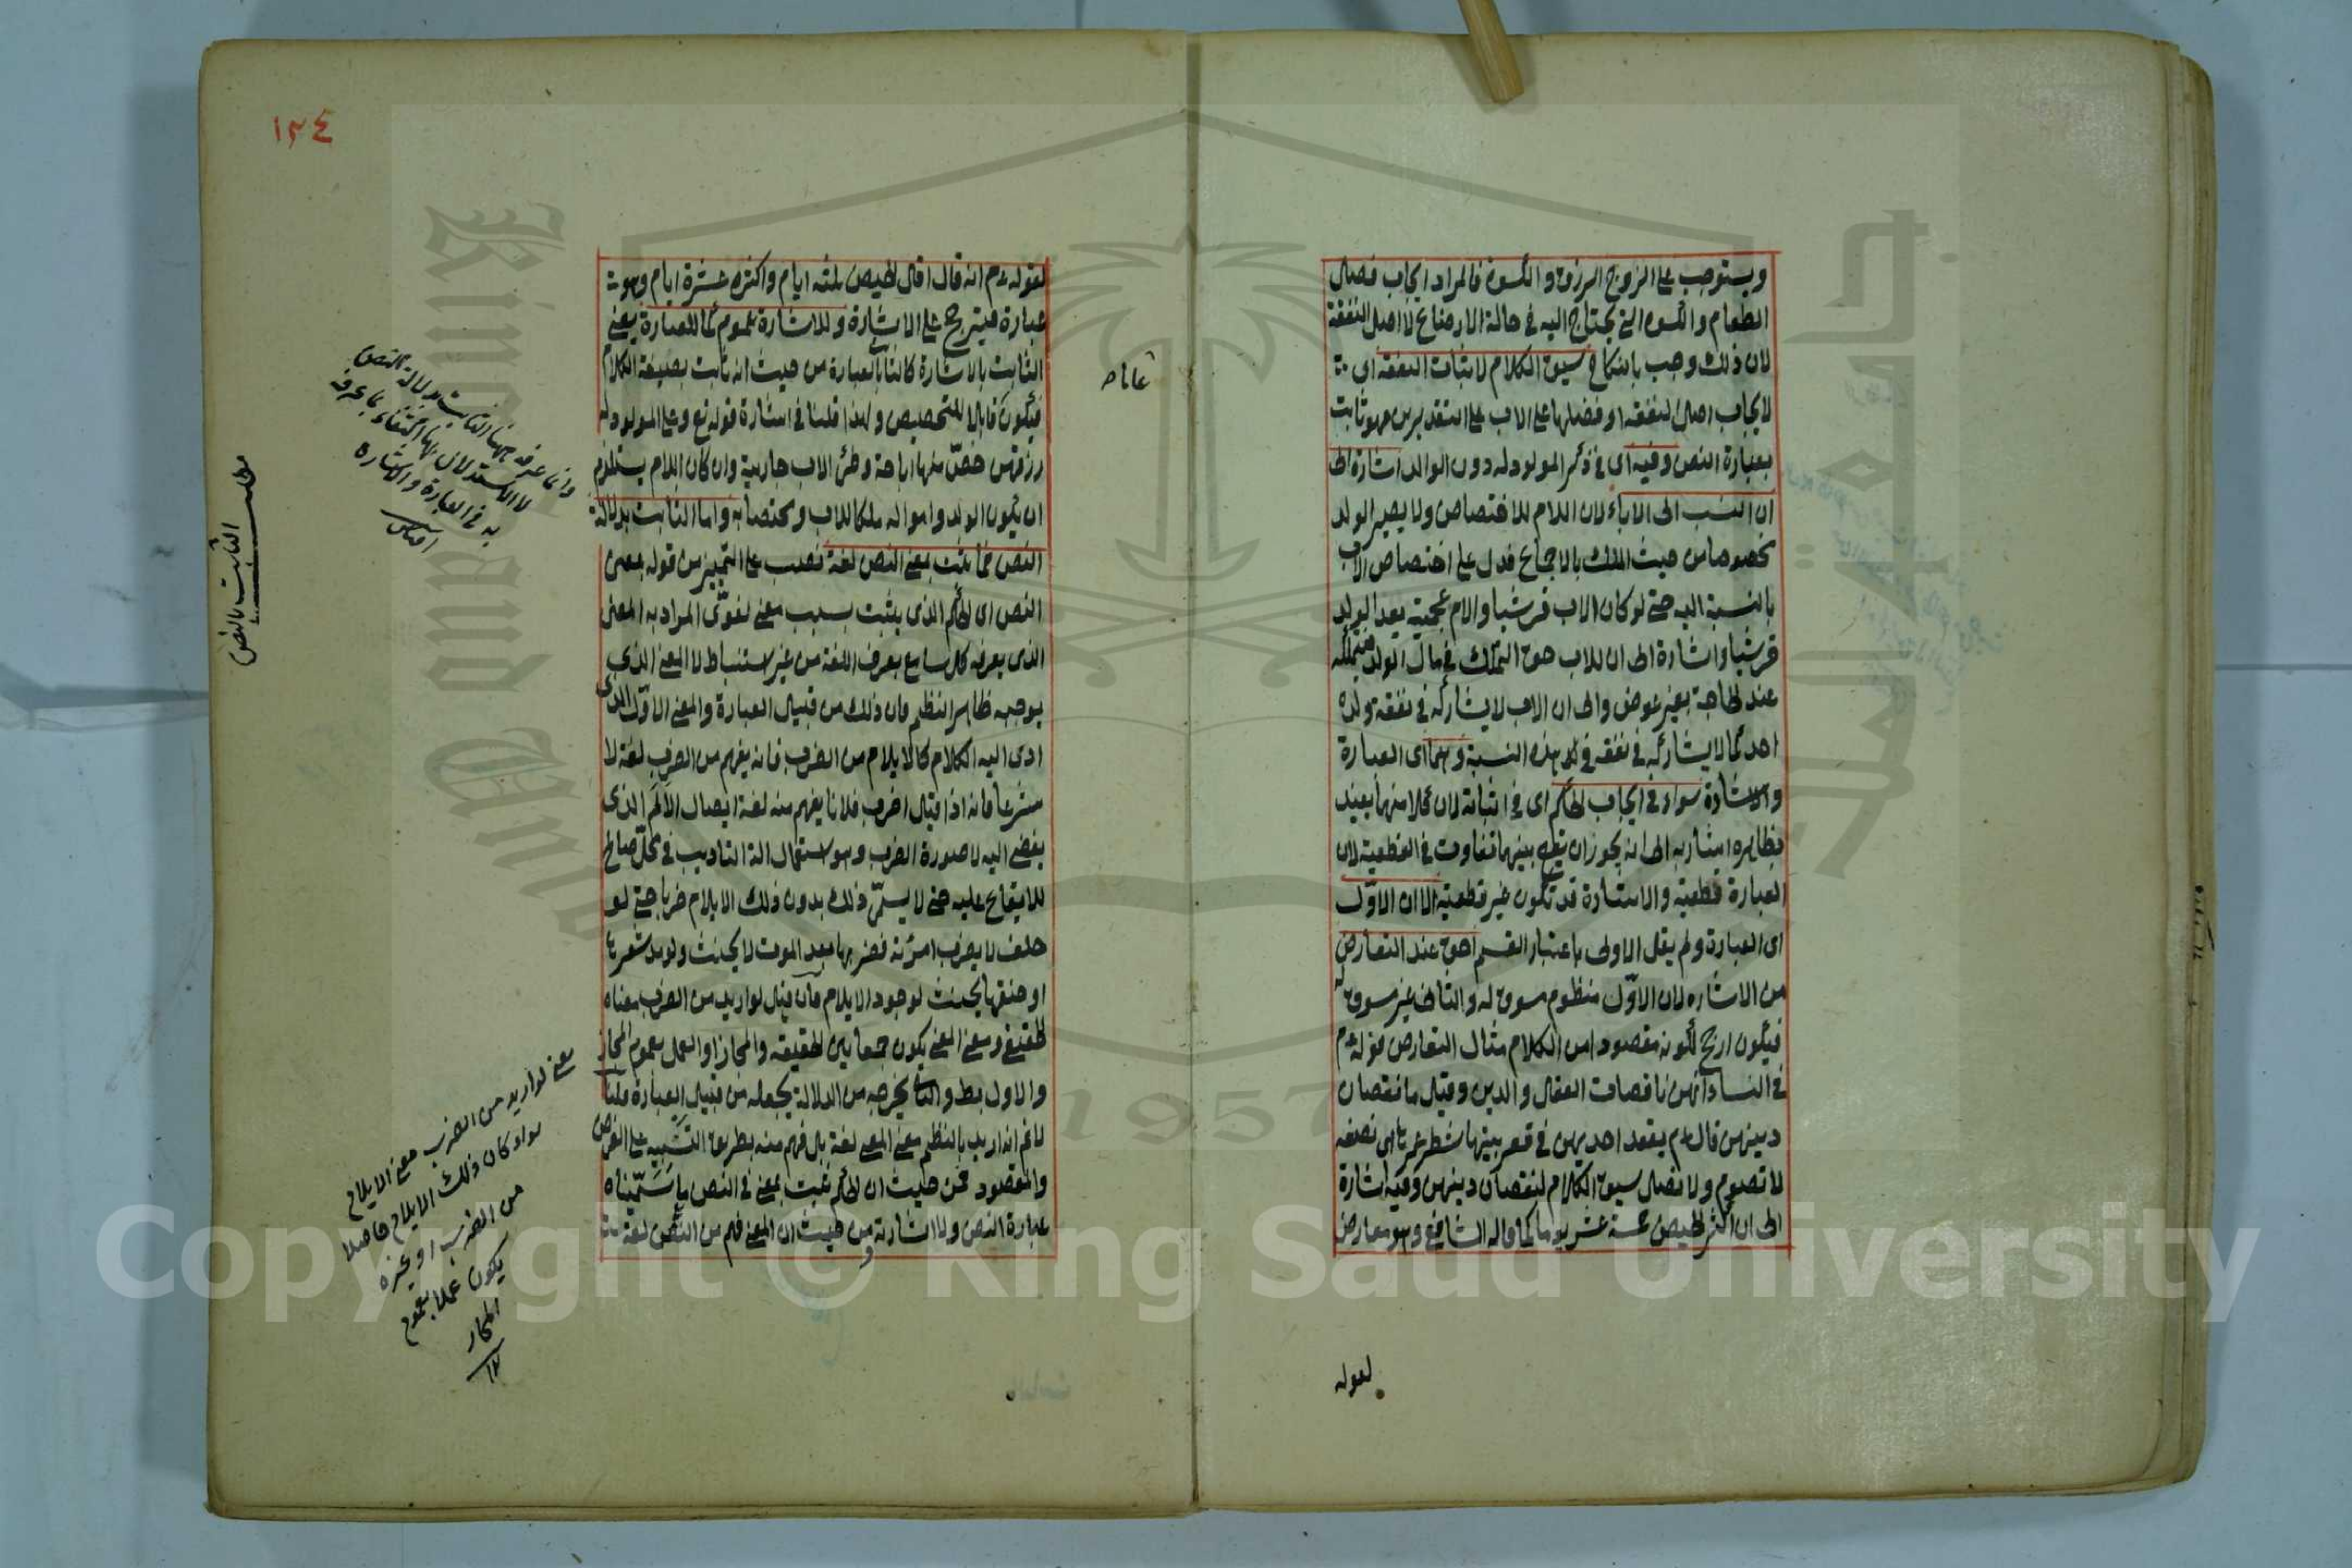 ويستوجب على الزوج الرزق والكسوة فالمراد ايجاب فضل
الطعام والكسوة التي يحتاج اليه في حالة الارضاع لا اصل النفقة
لان ذلك وجب بالنكاح سيق الكلام لاثبات النفقة اى
لايجاب اصل النفقة او فضلها على الاب على التقديرين فهو ثابت
بعبارة النص وفيه اى في ذكر المولود له دون الوالد اشارة الى
ان النسب الى الاباء لان اللام للاختصاص ولا يصير الولد
مخصوصا من حيث الملك بالاجماع فدل على اختصاص الاب
بالنسبة اليه حتى لو كان الاب قرشيا والام عجمية يعد الولد
قرشيا واشارة الى ان للاب حق التملك في مال الولد فيتملكه
عند الحاجة بغير عوض والى ان الاب لا يشاركه في نفقة ولده
احد كما لا يشاركه في هذه النسبة وهما اى العبارة
والاشارة سواء في ايجاب الحكم اى في اثباته لان كلا منهما يفيد
بظاهره اشار به الى انه يجوز ان يقع بينهما تفاوت في القطعية لان
العبارة قطعية والاشارة قد تكون غير قطعية الا ان الاول
اى العبارة ولم يقل الاولى باعتبار القسم احق عند التعارض
من الاشارة لان الاول منظوم مسوق له والثاني غير مسوق له
فيكون ارجح لكونه مقصودا من الكلام مثال التعارض قوله عم
في النساء انهن ناقصات العقل والدين وقيل ما نقصان
دينهن قال عم يقعد احديهن في قعر بيتها شطر عمرها اى نصفه
لا تصوم ولا تصلى سيق الكلام لنقصان دينهن وفيه اشارة
الى ان اكثر الحيض خمسة عشر يوما كما قاله الشافعى وهو معارض
لقوله
لقوله عم انه قال اقل الحيض ثلثة ايام واكثره عشرة ايام وهو
عبارة فيترجح على الاشارة وللاشارة عموم كما للعبارة يعنى
الثابت بالاشارة كالثابت بالعبارة من حيث انه ثابت بصيغة الكلام
فيكون قابلا للتخصيص ولهذا قلنا في اشارة قوله تع وعلى المولود له
رزقهن خص منها اباحة وطئ الاب جارية وان كان اللام يستلزم
ان يكون الولد وامواله ملكا للاب ومختصا به واما الثابت بدلالة
النص فما ثبت بمعنى النص لغة نصب على التمييز من قوله بمعنى
النص اى الحكم الذى يثبت بسبب معنى لغوى المراد به المعنى
الذى يعرفه كل سامع يعرف اللغة من غير استنباط لا المعنى الذى
يوجبه ظاهر النظم فان ذلك من قبيل العبارة والمعنى الاول الذى
ادى اليه الكلام كالايلام من الضرب فانه يفهم من الضرب لغة لا
شرعا فانه اذا قيل اضرب فلانا يفهم منه لغة ايصال الالم الذى
يفضى اليه لا صورة الضرب وهو استعمال الة التاديب في محل صالح
للايقاع عليه حتى لا يسمى ذلك بدون ذلك الايلام ضربا حتى لو
حلف لا يضرب امرأته فضربها بعد الموت لا يحنث ولو مد شعرها
او خنقها يحنث لوجود الايلام فان قيل لو اريد من الضرب معناه
الحقيقى ومعنى المعنى يكون جمعا بين الحقيقة والمجاز او العمل بعموم المجاز
والاول بط والثانى يخرجه من الدلالة يجعله من قبيل العبارة قلنا
لا نم انه اريد بالنظم معنى المعنى لغة بل فهم منه بطريق التنبيه على الغرض
والمقصود فمن حيث ان الحكم ثبت بمعنى في النص ما سميناه
عبارة النص ولا اشارته ومن حيث ان المعنى فهم من النص لغة
١٣٤
وانما عرفه ههنا الثابت بدلالة النص
لا الاستدلال بها اكتفاء بما عرفه
به في العبارة والاشارة
مطلب
الثابت بالنص
معنى لو اريد من الضرب معنى الايلام
سواء كان ذلك الايلام حاصلا
من الضرب او غيره
يكون عملا بعموم
المجاز